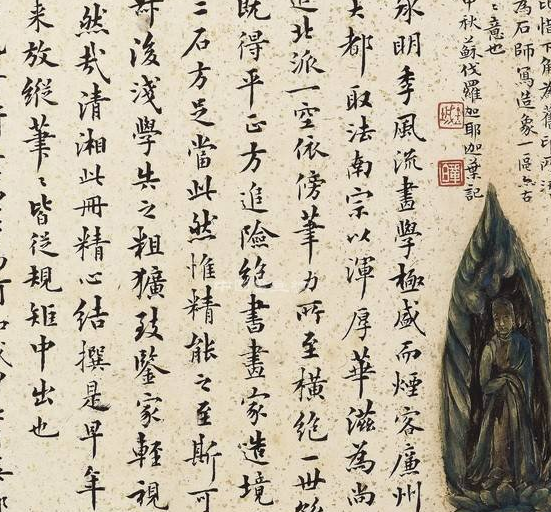 比悟下角為舊印所
為石師寫造象一區六古
意也
中秋蘇伐羅加耶加葉記
明季風流畫學極盛而煙客廉州
大都取法南宗以渾厚華滋為尚
北派一空依傍筆力所至橫絕一世
既得平正方進險絕書畫家造境
二石方足當此然惟精能之至斯可
後淺學失之粗獷致鑒家輕視
然哉清湘此冊精心結撰是早年
来放縱筆〻皆從規矩中出也